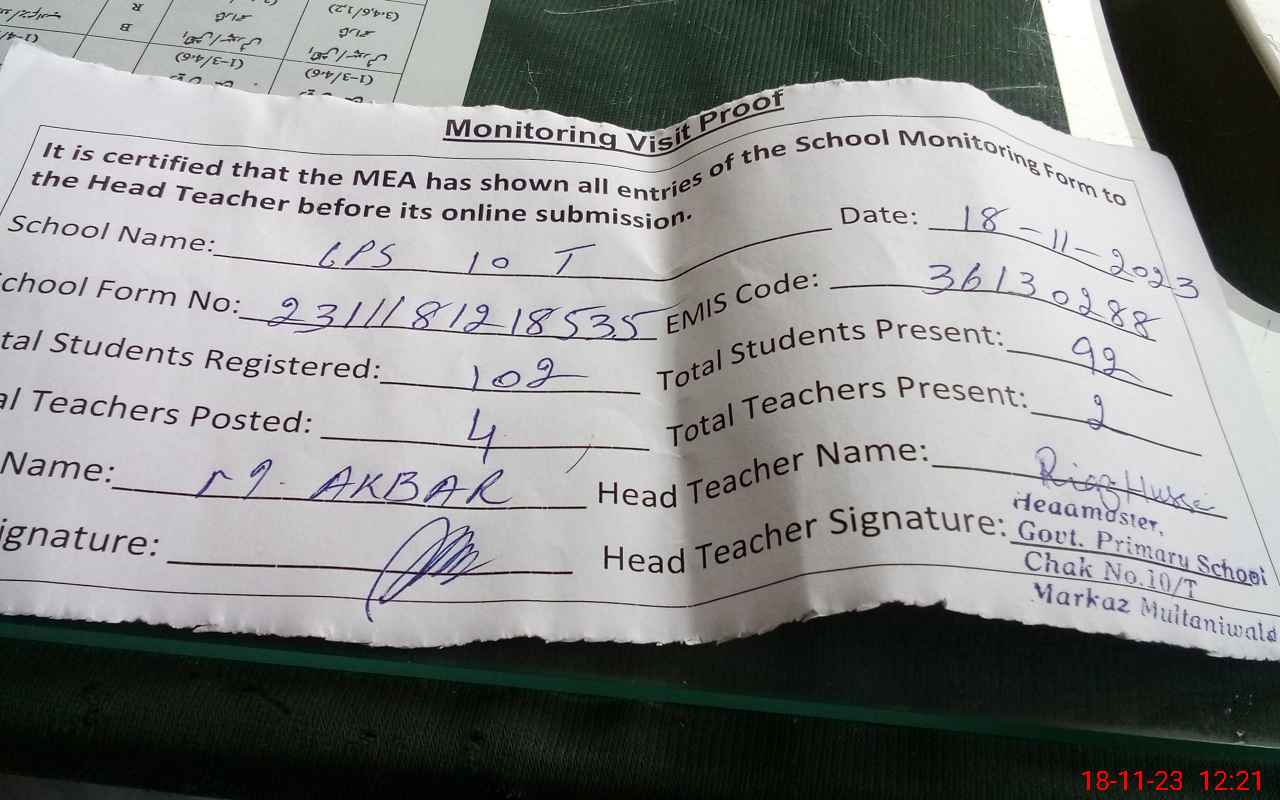 Monitoring Visit Proof
It is certified that the MEA has shown all entries of the School Monitoring Form to
the Head Teacher before its online submission.
School Name: GPS 10 T Date: 18-11-2023
chool Form No: 2311181218535 EMIS Code: 36130288
tal Students Registered: 102 Total Students Present: 92
al Teachers Posted: 4 Total Teachers Present: 2
Name: AKBAR Head Teacher Name:
ignature: Head Teacher Signature:
Headmaster,
Govt. Primary School
Chak No.10/T
Markaz Multaniwala
18-11-23 12:21